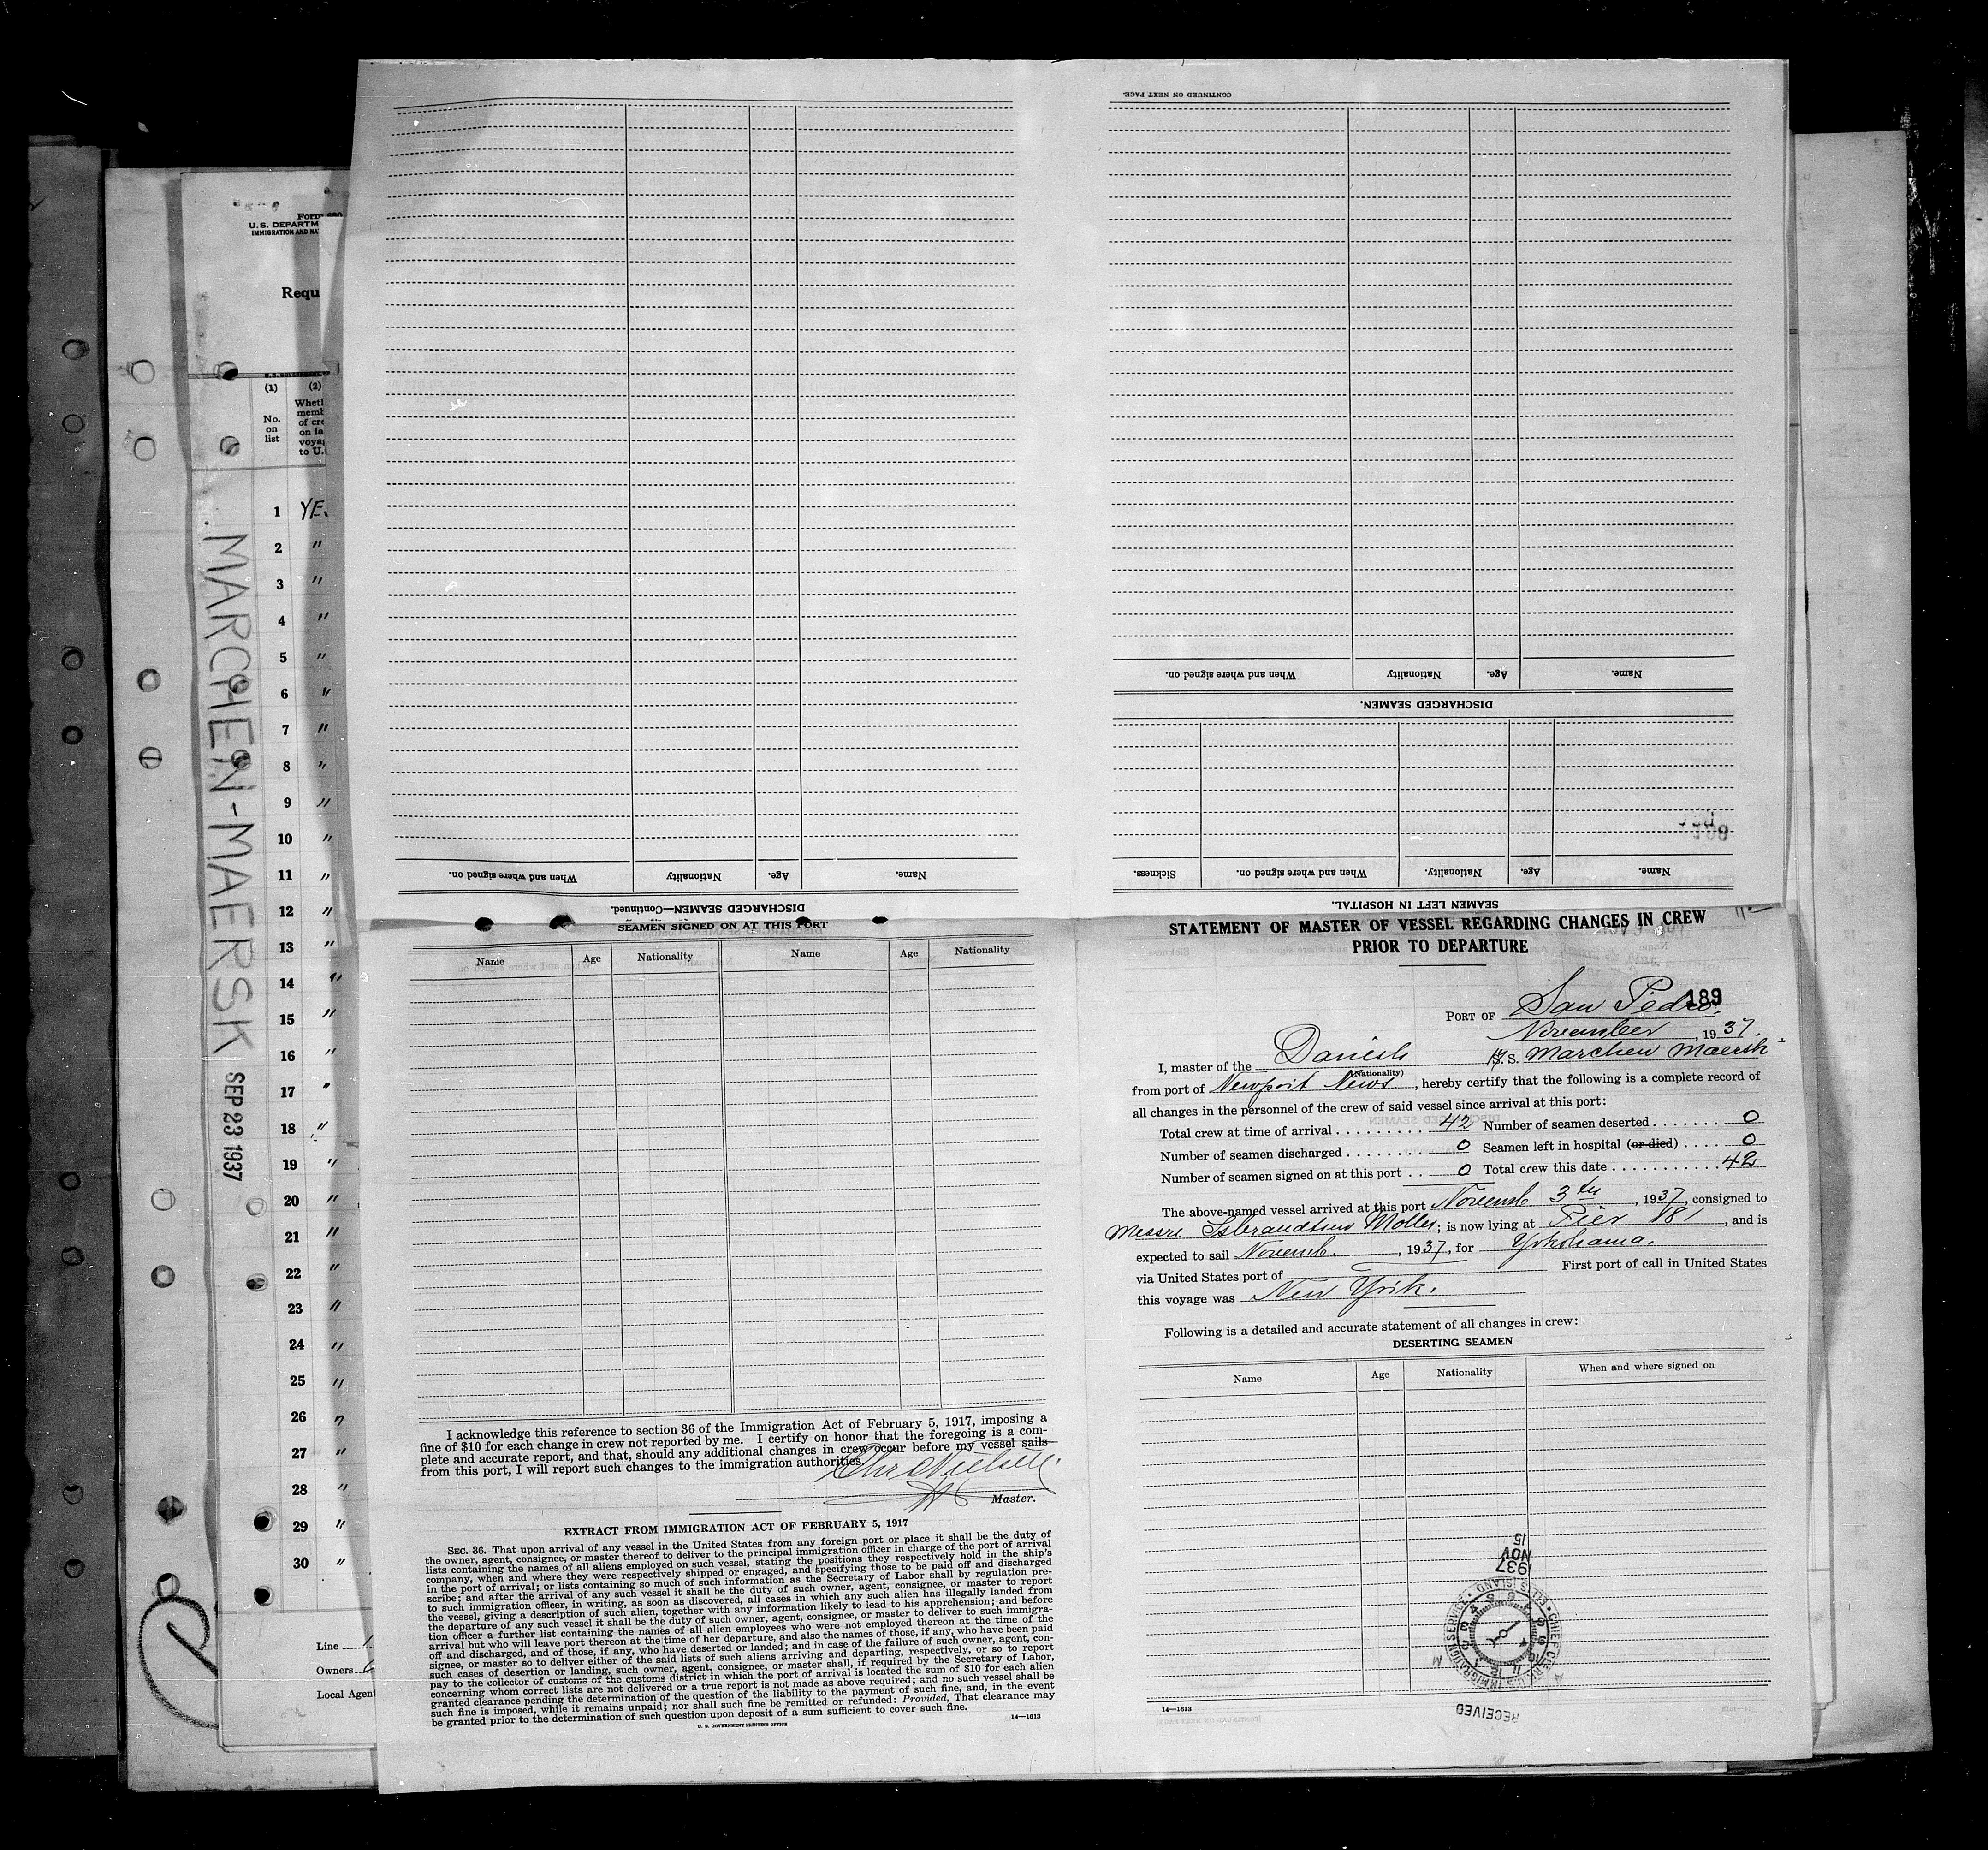 Form 680
U.S. DEPARTM
IMMIGRATION AND NA
Requ
(1) (2)
No. on list
Wheth
memb
of cre
on la
voyag
to U.
1 YES
2 "
3 "
4 "
5 "
6 "
7 "
8 "
9 "
10 "
11 "
12 "
13 "
14 "
15 "
16 "
17 "
18 "
19 "
20 "
21 "
22 "
23 "
24 "
25 "
26 "
27 "
28 "
29 "
30 "
Line
Owners
Local Agent
MARCHEN-MAERSK
SEP 23 1937
DISCHARGED SEAMEN—Continued.
Name. Age. Nationality When and where signed on.
SEAMEN LEFT IN HOSPITAL.
Name. Age. Nationality. When and where signed on. Sickness.
DISCHARGED SEAMEN.
Name. Age. Nationality When and where signed on.
CONTINUED ON NEXT PAGE.
SEAMEN SIGNED ON AT THIS PORT
Name Age Nationality Name Age Nationality
I acknowledge this reference to section 36 of the Immigration Act of February 5, 1917, imposing a
fine of $10 for each change in crew not reported by me. I certify on honor that the foregoing is a com-
plete and accurate report, and that, should any additional changes in crew occur before my vessel sails
from this port, I will report such changes to the immigration authorities.
Chr Nielsen
Master.
EXTRACT FROM IMMIGRATION ACT OF FEBRUARY 5, 1917
SEC. 36. That upon arrival of any vessel in the United States from any foreign port or place it shall be the duty of
the owner, agent, consignee, or master thereof to deliver to the principal immigration officer in charge of the port of arrival
lists containing the names of all aliens employed on such vessel, stating the positions they respectively hold in the ship's
company, when and where they were respectively shipped or engaged, and specifying those to be paid off and discharged
in the port of arrival; or lists containing so much of such information as the Secretary of Labor shall by regulation pre-
scribe; and after the arrival of any such vessel it shall be the duty of such owner, agent, consignee, or master to report
to such immigration officer, in writing, as soon as discovered, all cases in which any such alien has illegally landed from
the vessel, giving a description of such alien, together with any information likely to lead to his apprehension; and before
the departure of any such vessel it shall be the duty of such owner, agent, consignee, or master to deliver to such immigra-
tion officer a further list containing the names of all alien employees who were not employed thereon at the time of the
arrival but who will leave port thereon at the time of her departure, and also the names of those, if any, who have been paid
off and discharged, and of those, if any, who have deserted or landed; and in case of the failure of such owner, agent, con-
signee, or master so to deliver either of the said lists of such aliens arriving and departing, respectively, or so to report
such cases of desertion or landing, such owner, agent, consignee, or master shall, if required by the Secretary of Labor,
pay to the collector of customs of the customs district in which the port of arrival is located the sum of $10 for each alien
concerning whom correct lists are not delivered or a true report is not made as above required; and no such vessel shall be
granted clearance pending the determination of the question of the liability to the payment of such fine, and, in the event
such fine is imposed, while it remains unpaid; nor shall such fine be remitted or refunded: Provided, That clearance may
be granted prior to the determination of such question upon deposit of a sum sufficient to cover such fine.
U. S. GOVERNMENT PRINTING OFFICE 14—1613
STATEMENT OF MASTER OF VESSEL REGARDING CHANGES IN CREW
PRIOR TO DEPARTURE
189
PORT OF San Pedro.
November, 1937.
I, master of the Danish M. S. Marchen Maersk
(Nationality)
from port of Newport News, hereby certify that the following is a complete record of
all changes in the personnel of the crew of said vessel since arrival at this port:
Total crew at time of arrival 42 Number of seamen deserted 0
Number of seamen discharged 0 Seamen left in hospital (or died) 0
Number of seamen signed on at this port 0 Total crew this date 42
The above-named vessel arrived at this port Novemb 3th, 1937, consigned to
Messrs Isbrandtsen Moller; is now lying at Pier 181, and is
expected to sail Novemb., 1937, for Yokohama.
via United States port of First port of call in United States
this voyage was New York.
Following is a detailed and accurate statement of all changes in crew:
DESERTING SEAMEN
Name Age Nationality When and where signed on
1937
NOV
15
CHIEF CLERK U.S. IMMIGRATION SERVICE ELLIS ISLAND
RECEIVED
14—1613